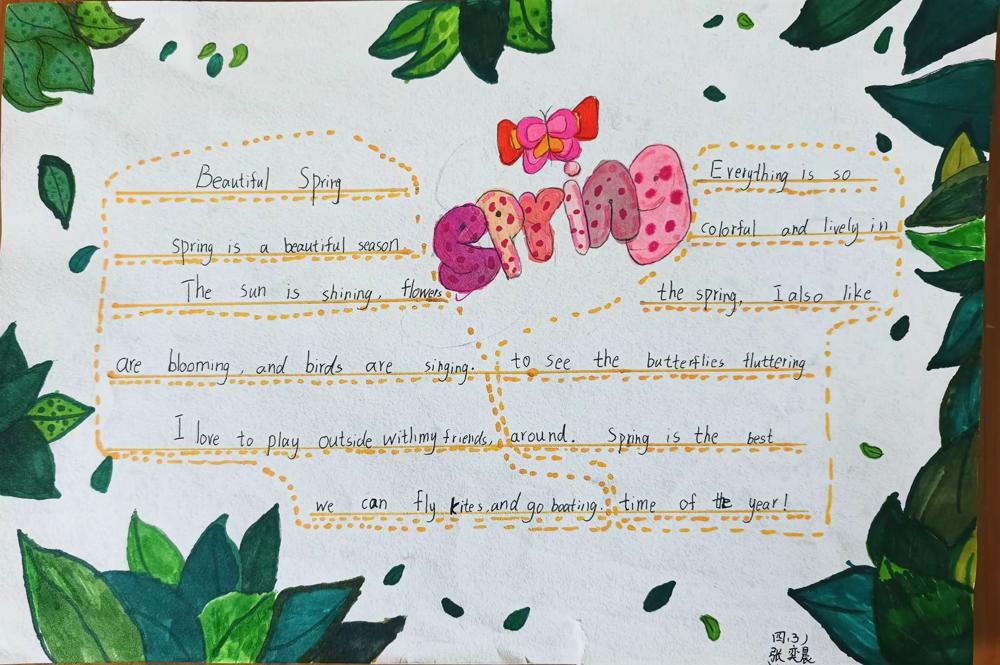 Beautiful Spring
Spring is a beautiful season.
The sun is shining, flowers
are blooming, and birds are singing.
I love to play outside with my friends,
we can fly kites, and go boating.
Spring
Everything is so
colorful and lively in
the spring, I also like
to see the butterflies fluttering
around. Spring is the best
time of the year!
四(3)
张奕晨